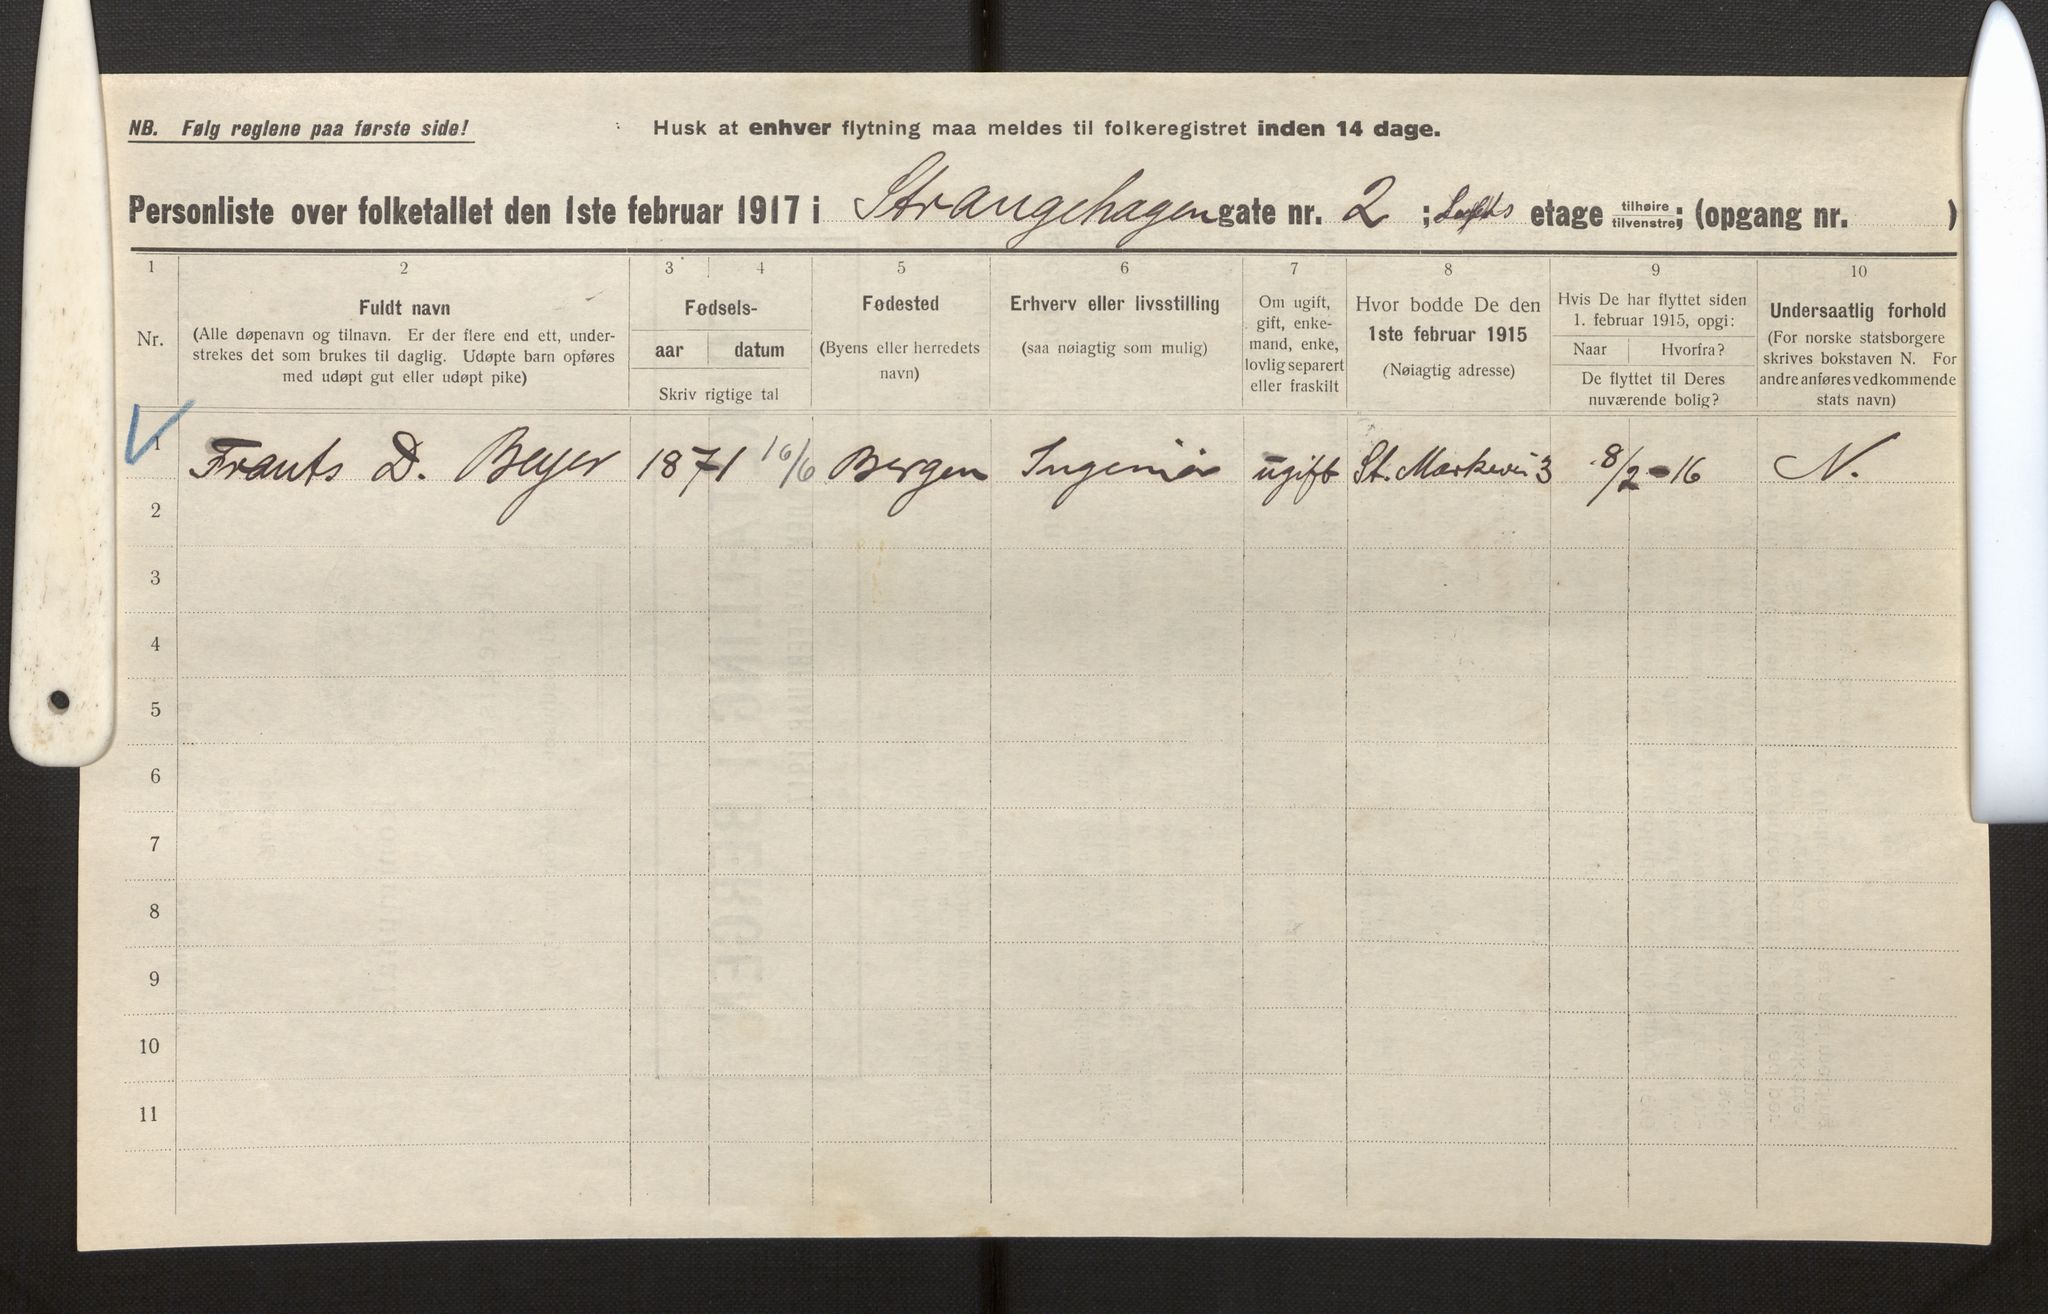 NB. Følg reglene paa første side!
Husk at enhver flytning maa meldes til folkeregistret inden 14 dage.
Personliste over folketallet den 1ste februar 1917 i Strangehagen gate nr. 2 ; Lofts etage tilhøire tilvenstre; (opgang nr. )
1 2 3 4 5 6 7 8 9 10
Nr.
Fuldt navn
(Alle døpenavn og tilnavn. Er der flere end ett, under-
strekes det som brukes til daglig. Udøpte barn opføres
med udøpt gut eller udøpt pike)
Fødsels-
aar datum
Skriv rigtige tal
Fødested
(Byens eller herredets
navn)
Erhverv eller livsstilling
(saa nøiagtig som mulig)
Om ugift,
gift, enke-
mand, enke,
lovlig separert
eller fraskilt
Hvor bodde De den
1ste februar 1915
(Nøiagtig adresse)
Hvis De har flyttet siden
1. februar 1915, opgi:
Naar Hvorfra?
De flyttet til Deres
nuværende bolig?
Undersaatlig forhold
(For norske statsborgere
skrives bokstaven N. For
andre anføres vedkommende
stats navn)
1 Frants D. Beyer 1871 16/6 Bergen Ingeniør ugift St. Markevei 3 8/2-16 N.
2
3
4
5
6
7
8
9
10
11